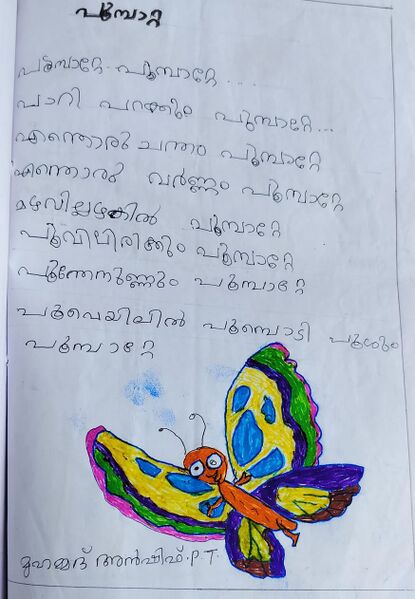 പൂമ്പാറ്റ
പൂമ്പാറ്റേ പൂമ്പാറ്റേ ....
പാറി പറക്കും പൂമ്പാറ്റേ...
എന്തൊരു ചന്തം പൂമ്പാറ്റേ
എന്തൊരു വർണ്ണം പൂമ്പാറ്റേ
മഴവില്ലഴകിൽ പൂമ്പാറ്റേ
പൂവിലിരിക്കും പൂമ്പാറ്റേ
പൂന്തേനുണ്ണും പൂമ്പാറ്റേ
പൂവെയിലിൽ പൂമ്പൊടി പൂശും
പൂമ്പാറ്റേ
മുഹമ്മദ് അൻഷിഫ്.P.T.